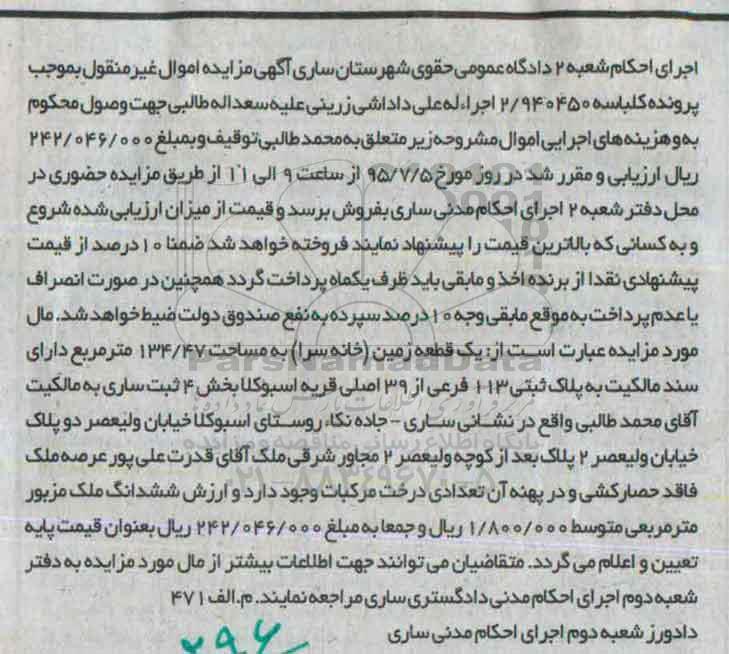 اجرای احکام شعبه ۲ دادگاه عمومی حقوی شهرستان ساری آگهی مزایده اموال غیر منقول بموجب
پرونده کلاسه ۲/۹۴۰۴۵۰ اجرا، له علی داداشی زرینی علیه سعداله طالبی جهت وصول محکوم
به و هزینه های اجرایی اموال مشروحه زیر متعلق به محمد طالبی توقیف و بمبلغ ۲۴۲/۰۴۶/۰۰۰
ریال ارزیابی و مقرر شد در روز مورخ ۹۵/۷/۵ از ساعت ۹ الی ۱۱ از طریق مزایده حضوری در
محل دفتر شعبه ۲ اجرای احکام مدنی ساری بفروش برسد و قیمت از میزان ارزیابی شده شروع
و به کسانی که بالاترین قیمت را پیشنهاد نمایند فروخته خواهد شد ضمنا ۱۰ درصد از قیمت
پیشنهادی نقدا از برنده اخذ و مابقی باید ظرف یکماه پرداخت گردد همچنین در صورت انصراف
یا عدم پرداخت به موقع مابقی وجه ۱۰ درصد سپرده به نفع صندوق دولت ضبط خواهد شد. مال
مورد مزایده عبارت است از: یک قطعه زمین (خانه سرا) به مساحت ۱۳۴/۴۷ مترمربع دارای
سند مالکیت به پلاک ثبتی ۱۱۳ فرعی از ۳۹ اصلی قریه اسبوکلا بخش ۴ ثبت ساری به مالکیت
آقای محمد طالبی واقع در نشانی ساری - جاده نکا، روستای اسبوکلا خیابان ولیعصر دو پلاک
خیابان ولیعصر ۲ پلاک بعد از کوچه ولیعصر ۲ مجاور شرقی ملک آقای قدرت علی پور عرصه ملک
فاقد حصارکشی و در پهنه آن تعدادی درخت مرکبات وجود دارد و ارزش ششدانگ ملک مزبور
مترمربعی متوسط ۱/۸۰۰/۰۰۰ ریال و جمعا به مبلغ ۲۴۲/۰۴۶/۰۰۰ ریال بعنوان قیمت پایه
تعیین و اعلام می گردد. متقاضیان می توانند جهت اطلاعات بیشتر از مال مورد مزایده به دفتر
شعبه دوم اجرای احکام مدنی دادگستری ساری مراجعه نمایند. م.الف ۴۷۱
دادورز شعبه دوم اجرای احکام مدنی ساری
۲۹۶
ParsNamadData
پایگاه اطلاع رسانی مناقصه و مزایده